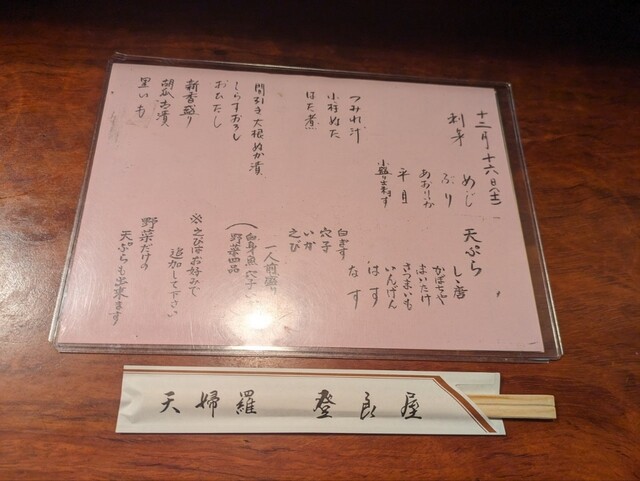 十二月十六日(土)
刺身
めじ
ぶり
あおりいか
平目
小盛り出来ます
つみれ汁
小柱ぬた
はた煮
間引き大根ぬか漬
しらすおろし
おひたし
新香盛り
胡瓜古漬
里いも
天ぷら
しし唐
かぼちゃ
まいたけ
さつまいも
いんげん
はす
なす
白ぎす
穴子
いか
えび
一人前盛り
(白身魚 穴子 いか
野菜四品
※えびはお好みで
追加して下さい
野菜だけの
天ぷらも出来ます
天婦羅 登良屋